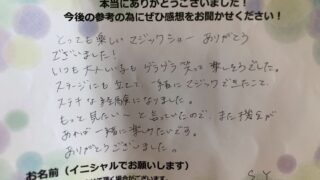 本当にありがとうございました！
今後の参考の為にぜひ感想をお聞かせください！
とっても楽しいマジックショーありがとう
ございました！
いつも大人しい子もゲラゲラ笑って楽しそうでした。
ステージにも立て、一緒にマジックできたこと、
ステキな経験になりました。
もっと見たい〜と言っていたので、また機会が
あれば一緒に楽しみたいです。
ありがとうございました。
お名前（イニシャルでお願いします）
S.Y